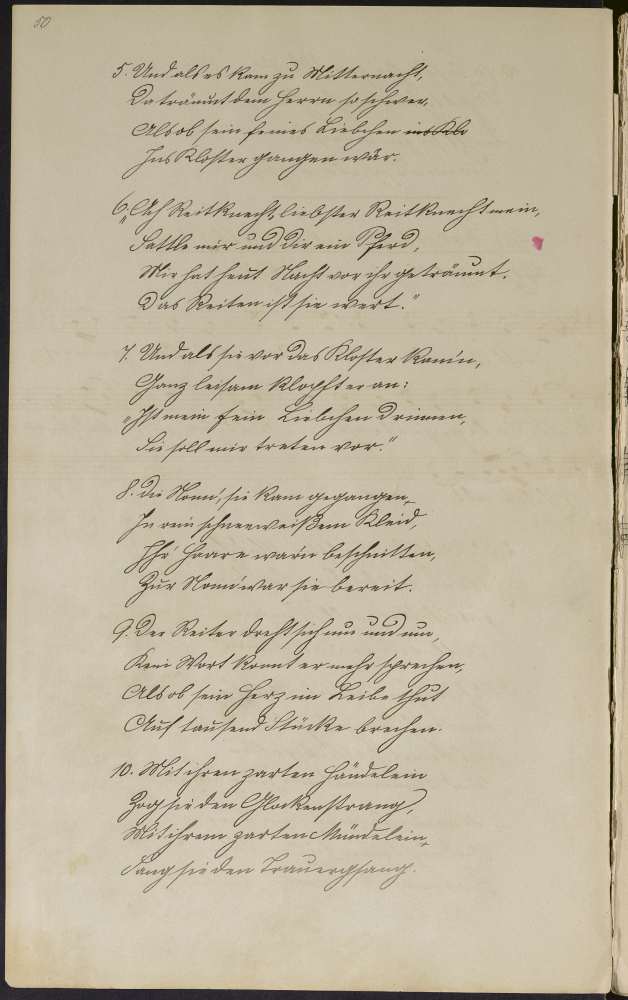 50
5. Und als es kam zu Mitternacht,
Da träumt dem Herrn so schwer,
Als ob sein feines Liebchen ins Klo
Ins Kloster gangen wär.
6. „Ach Reitknecht, liebster Reitknecht mein,
Sattle mir und Dir ein Pferd,
Mir hat heut Nacht vor ihr geträumt.
Das Reiten ist sie wert."
7. Und als sie vor das Kloster kam'n,
Ganz leisam klopft er an:
„Ist mein fein Liebchen drinnen,
Sie soll mir treten vor."
8. Die Nonn', sie kam gegangen,
In ein schneeweißem Kleid,
Ihr' Haare war'n beschnitten,
Zur Nonn' war sie bereit.
9. Der Reiter dreht sich um und um,
Kein Wort konnt er mehr sprechen,
Als ob sein Herz im Leibe thut
Auf tausend Stücke brechen.
10. Mit ihren zarten Händelein
Zog sie den Glockenstrang,
Mit ihrem zarten Mündelein,
Sang sie den Trauergsang.